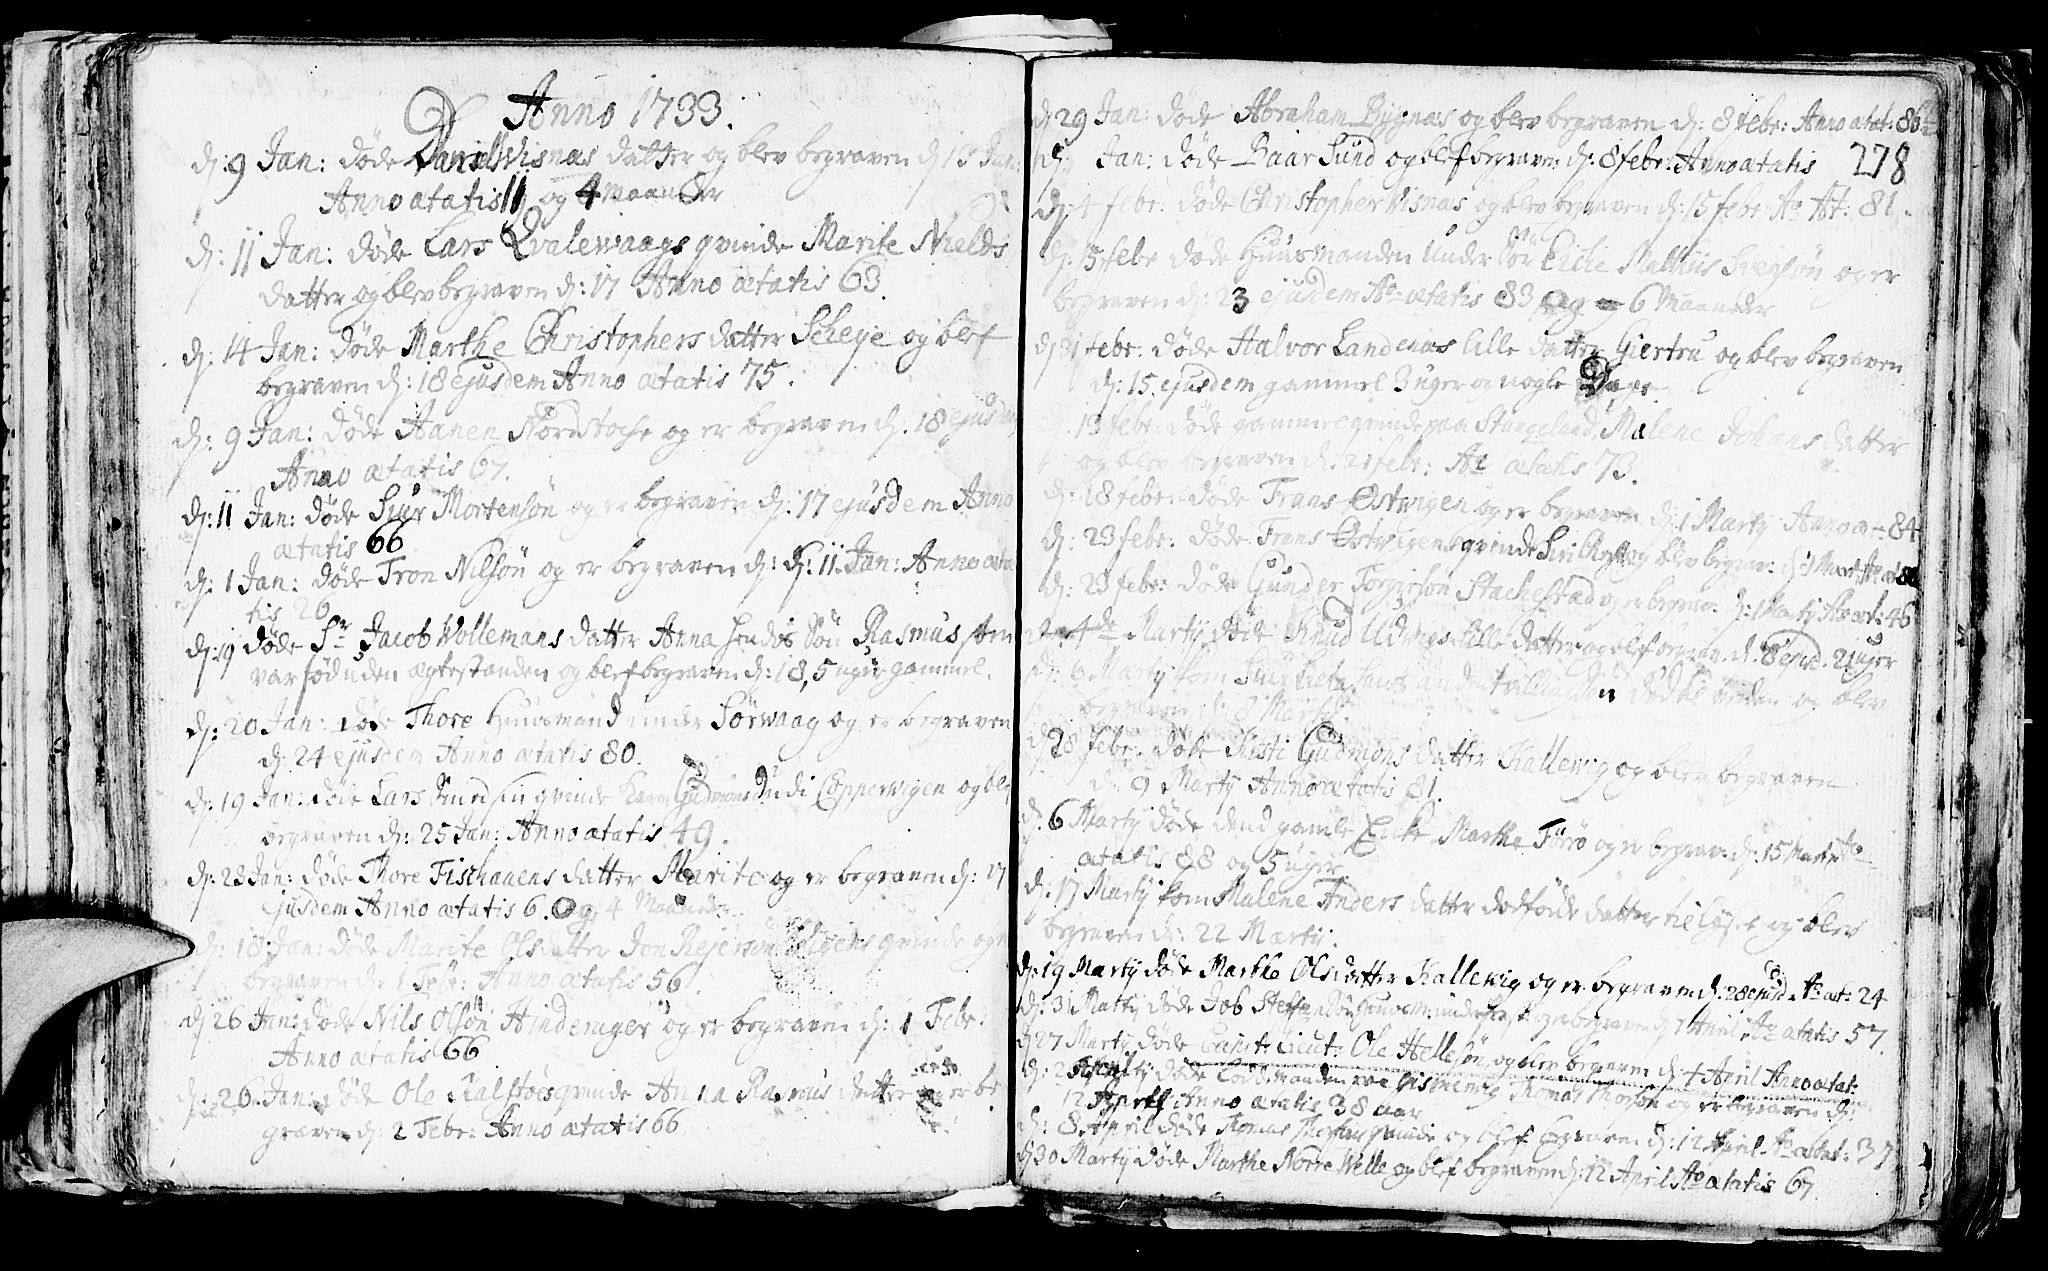 Anno 1733.
d: 9 Jan: døde Daniel Visnæs datter og blev begraven d 15 Jan:
Anno ætatis 11 og 4 maaneder
d: 11 Jan: døde Lars Qvalewaags qvinde Marite Nields
datter og blev begraven d: 17 Anno ætatis 63.
d: 14 Jan: døde Marthe Christophers datter Scheye og blef
begraven d: 18 ejusdem Anno ætatis 75.
d: 9 Jan: døde Aanen Nordstoche og er begraven d. 18 ejusdem
Anno ætatis 67.
d: 11 Jan: døde Siur Mortensøn og er begraven d: 17 ejusdem Anno
ætatis 66
d: 1 Jan: døde Tron Nilsøn og er begraven d: d: 11 Jan: Anno æta
tis 26
d: 19 døde Sr Jacob Wollemans datter Anna hendes Søn Rasmus som
var fød uden ægtestanden og blef begraven d: 18, 5 uger gammel.
d: 20 Jan: døde Thore Huusmand under Sørwaag og er begraven
d: 24 ejusdem Anno ætatis 80.
d: 19 Jan: døde Lars Smed sin qvinde Karen Gudmons di Coppervigen og blef
begraven d: 25 Jan: Anno ætatis 49.
d: 28 Jan: døde Thore Fischaaens datter Marite og er begraven d: 17
ejusdem Anno ætatis 6. Og 4 Maaneder
d: 18 Jan: døde Marite Olsdatter Jon Rejersøn qvinde og er
begraven d: 1 Febr: Anno ætatis 56
d: 26 Jan: døde Nils Olsøn Hinderager og er begraven d: 1 Febr:
Anno ætatis 66
d: 26 Jan: døde Ole Kalstøes qvinde Anna Rasmus datter og er be
graven d: 2 Febr: Anno ætatis 66
d 29 Jan: døde Abraham Bygnæs og blev begraven d: 8 febr: Anno ætat: 86
d: Jan: døde Baar Sund og blef begraven d: 8 febr: Anno ætatis 278
d: 4 febr: døde Christopher Visnæs og blev begraven d: 15 febr Ao Æt: 81.
d: 15 febr døde Huusmanden under Sør Mathiis Svensøn og er
begraven d: 23 ejusdem Ao ætatis 83 og 6 Maaneder
d: 11 febr: døde Halvor Landenæs lille datter Giertru og blev begraven
d: 15 ejusdem gammel 3 uger og nogle Dage.
d: 13 febr: døde gammel qvinde paa Stangeland, Malene Johans datter
og blev begraven d: 21 febr: Ao ætatis 73.
d: 18 febr: døde Frans Østwigen og er begraven d: 1 Martij Anno æt: 84
d: 23 febr: døde Frans Østvigens qvinde Siri og blev begrav: d: 1 Mart: Ao æt 80
d: 23 febr: døde Gunder Torgiersøn Stachestad og er begrav: d: 1 Martij Ao æt: 46
den 4de Martij døde Knud Udnæs lille datter og blef begrav: d. 8 ejusd. 2 uger
d: 6 Martij kom Siur anden tvilling Søn død til verden og blev
begraven d: 8 Martij.
d 28 febr: døde Kisti Gudmons datter Hallewig og blev begraven
d: 9 Martij Anno ætatis 81.
d. 6 Martij døde dend gamle Encke Marthe Førrø og er begrav: d: 15 Martij Ao
ætatis 88 og 5 uger.
d: 17 Martij kom Malene Anders datter dødføde datter til lyset og blev
begraven d: 22 Martij.
d: 19 Martij døde Marthe Olsdatter Hallewig og er begraven d: 28 ejusd. Ao æt: 24
d: 31 Martij døde Job Steffensøn og er begraven d 7 April Ao ætatis 57.
d 27 Martij døde Capit: Lieut: Ole Hellesøn og blev begraven d: 4 April Anno ætat:
d: 2 April døde Lodsmanden Thomas Thorsøn og er begraven d:
12 April Anno ætatis 38 aar
d: 8 April døde Thomas Thorsøns qvinde og blef begraven d: 12 April Ao ætat: 37
d 30 Martij døde Marthe Norre Welle og blef begraven d: 12 April Ao ætatis 67.